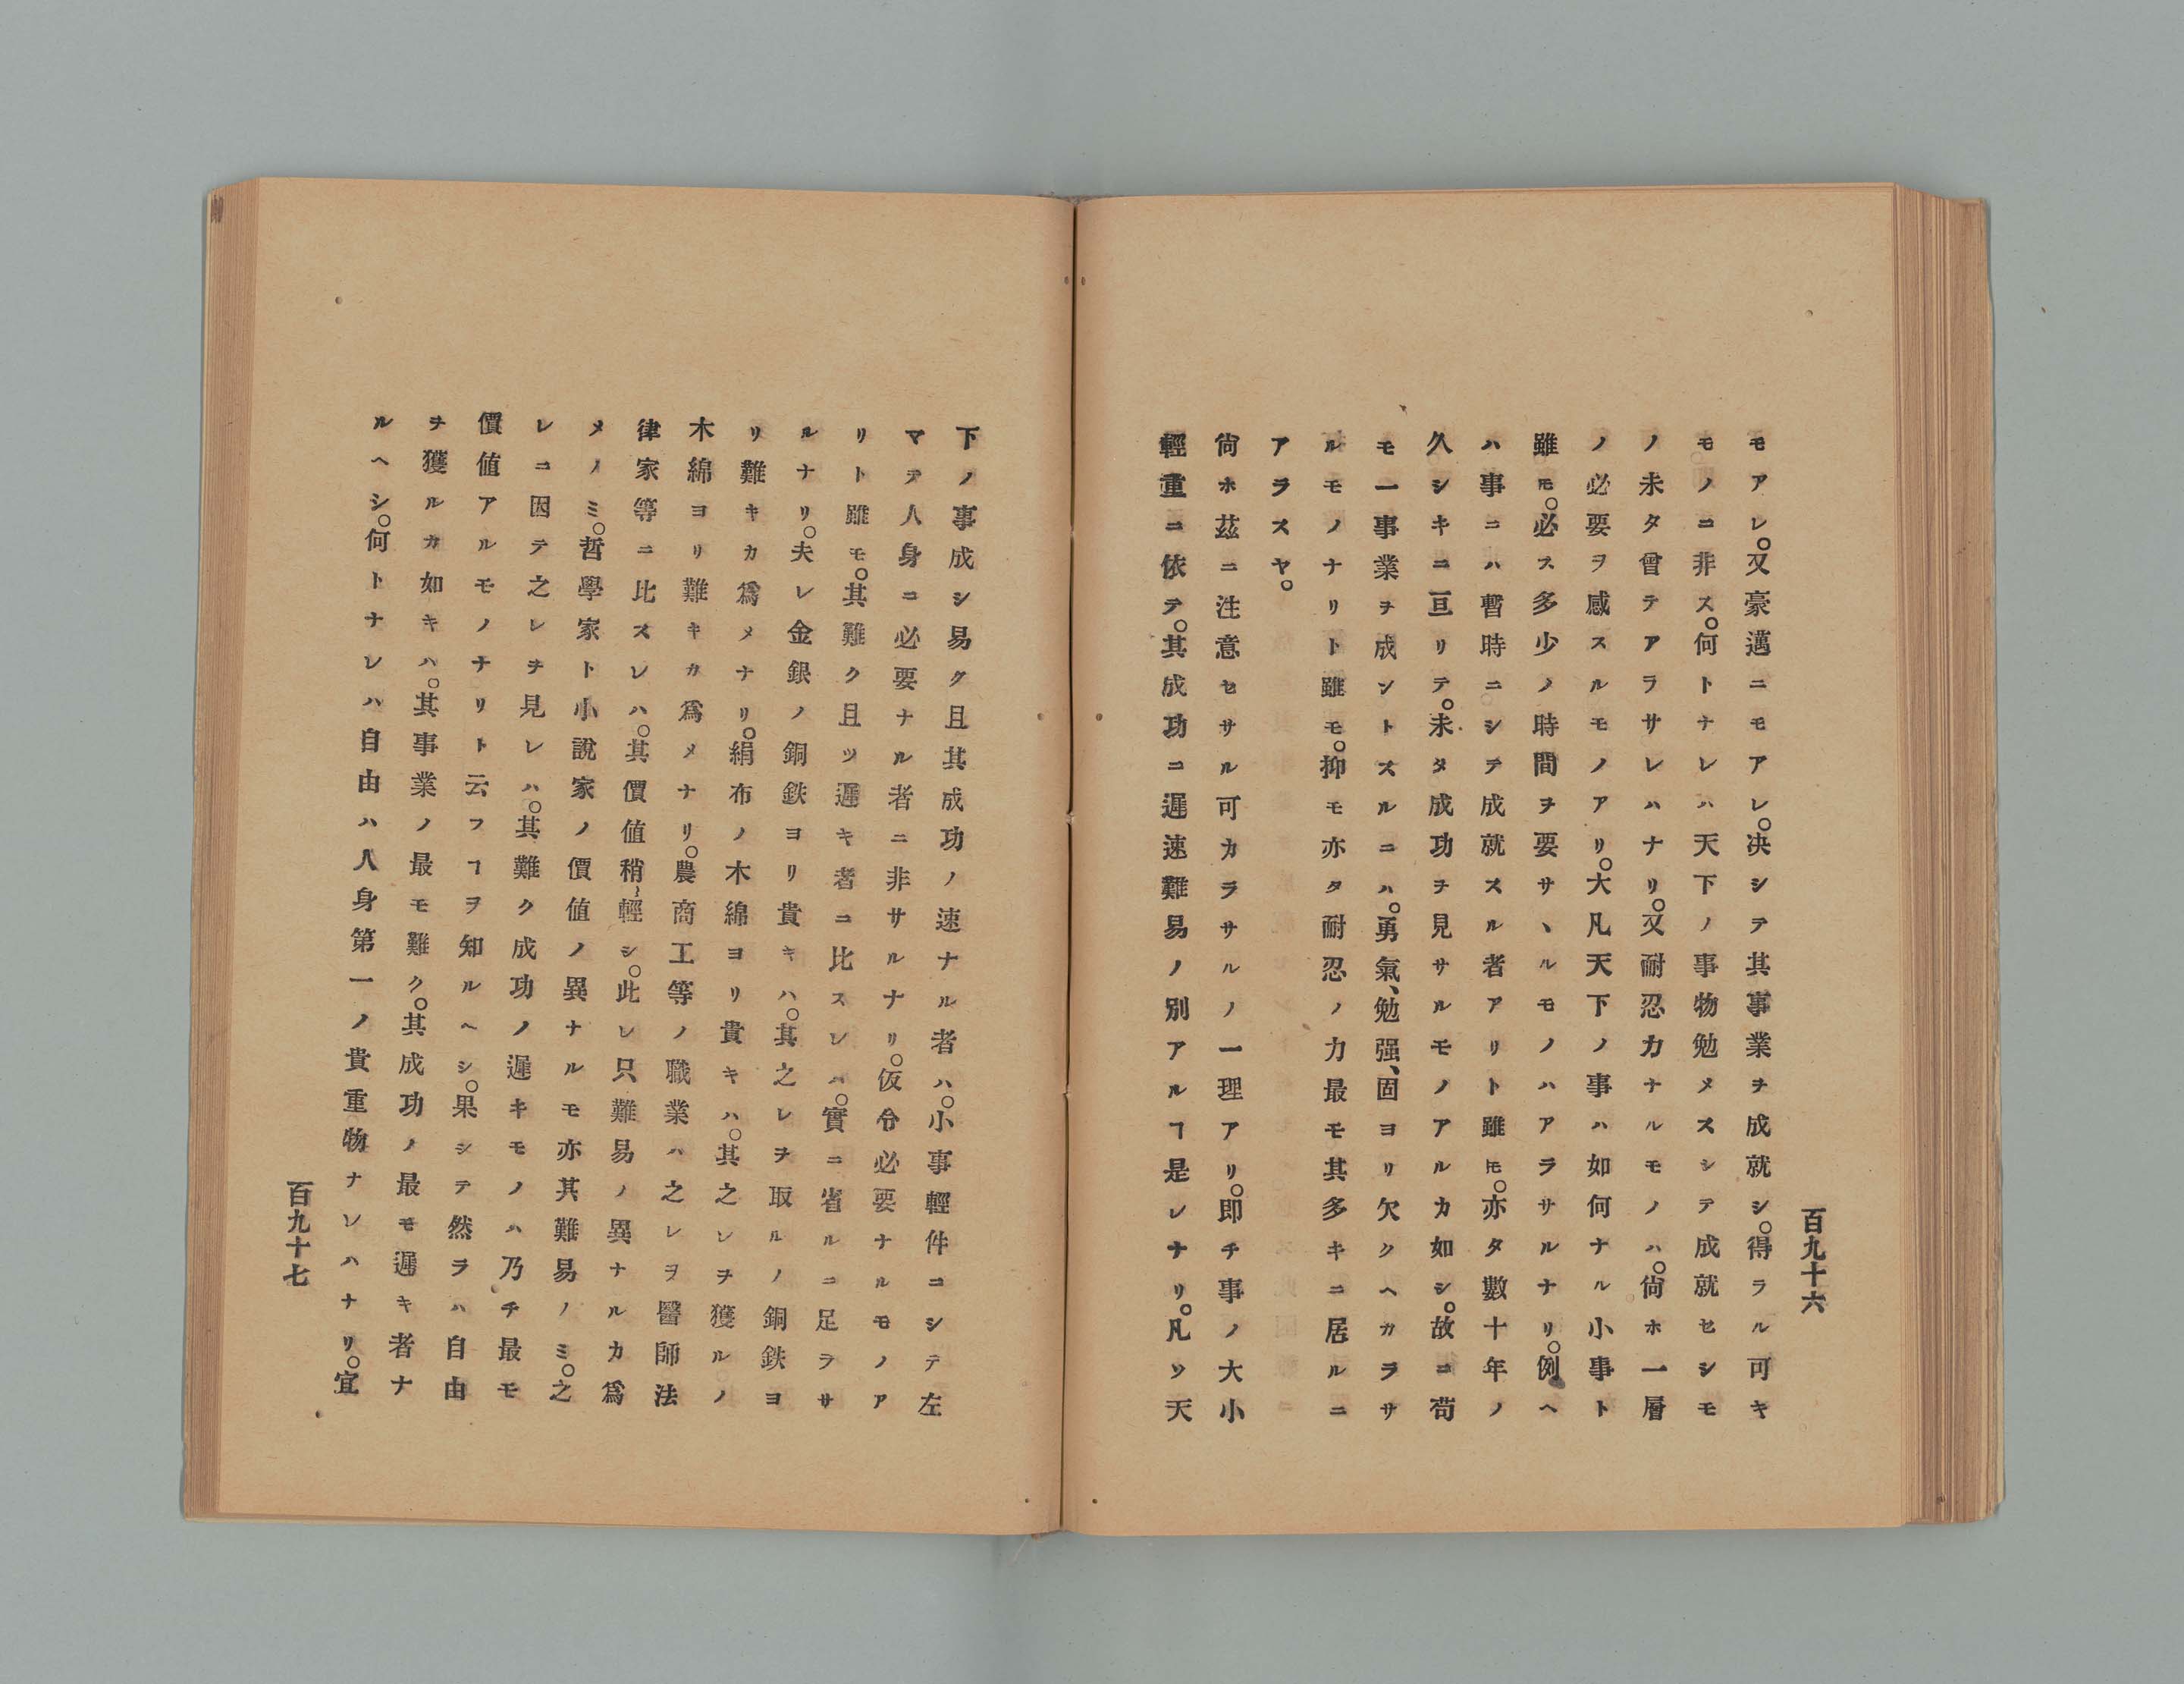 百九十六
モアレ。又豪邁ニモアレ。決シテ其事業ヲ成就シ。得ラル可キ
モノニ非ス。何トナレハ天下ノ事物勉メスシテ成就セシモ
ノ未タ曾テアラサレハナリ。又耐忍力ナルモノハ。尙ホ一層
ノ必要ヲ感スルモノアリ。大凡天下ノ事ハ如何ナル小事ト
雖𪜈。必ス多少ノ時間ヲ要サヽルモノハアラサルナリ。例ヘ
ハ事ニハ暫時ニシテ成就スル者アリト雖𪜈。亦タ數十年ノ
久シキニ亘リテ。未タ成功ヲ見サルモノアルカ如シ。故ニ苟
モ一事業ヲ成ントスルニハ。勇氣、勉强、固ヨリ欠クヘカラサ
ルモノナリト雖モ。抑モ亦タ耐忍ノ力最モ其多キニ居ルニ
アラスヤ。
尙ホ茲ニ注意セサル可カラサルノ一理アリ。即チ事ノ大小
輕重ニ依テ。其成功ニ遲速難易ノ別アルヿ是レナリ。凡ソ天
下ノ事成シ易ク且其成功ノ速ナル者ハ。小事輕件ニシテ左
マテ人身ニ必要ナル者ニ非サルナリ。仮令必要ナルモノア
リト雖モ。其難ク且ツ遲キ者ニ比スレハ。實ニ省ルニ足ラサ
ルナリ。夫レ金銀ノ銅鉄ヨリ貴キハ。其之レヲ取ルノ銅鉄ヨ
リ難キカ爲メナリ。絹布ノ木綿ヨリ貴キハ。其之レヲ獲ルノ
木綿ヨリ難キカ爲メナリ。農商工等ノ職業ハ之レヲ醫師法
律家等ニ比スレハ。其價値稍〻輕シ。此レ只難易ノ異ナルカ爲
メノミ。哲學家ト小說家ノ價値ノ異ナルモ亦其難易ノミ。之
レニ因テ之レヲ見レハ。其難ク成功ノ遲キモノハ乃チ最モ
價値アルモノナリト云フヿヲ知ルヘシ。果シテ然ラハ自由
ヲ獲ルカ如キハ。其事業ノ最モ難ク。其成功ノ最モ遲キ者ナ
ルヘシ。何トナレハ自由ハ人身第一ノ貴重物ナレハナリ。宜
百九十七